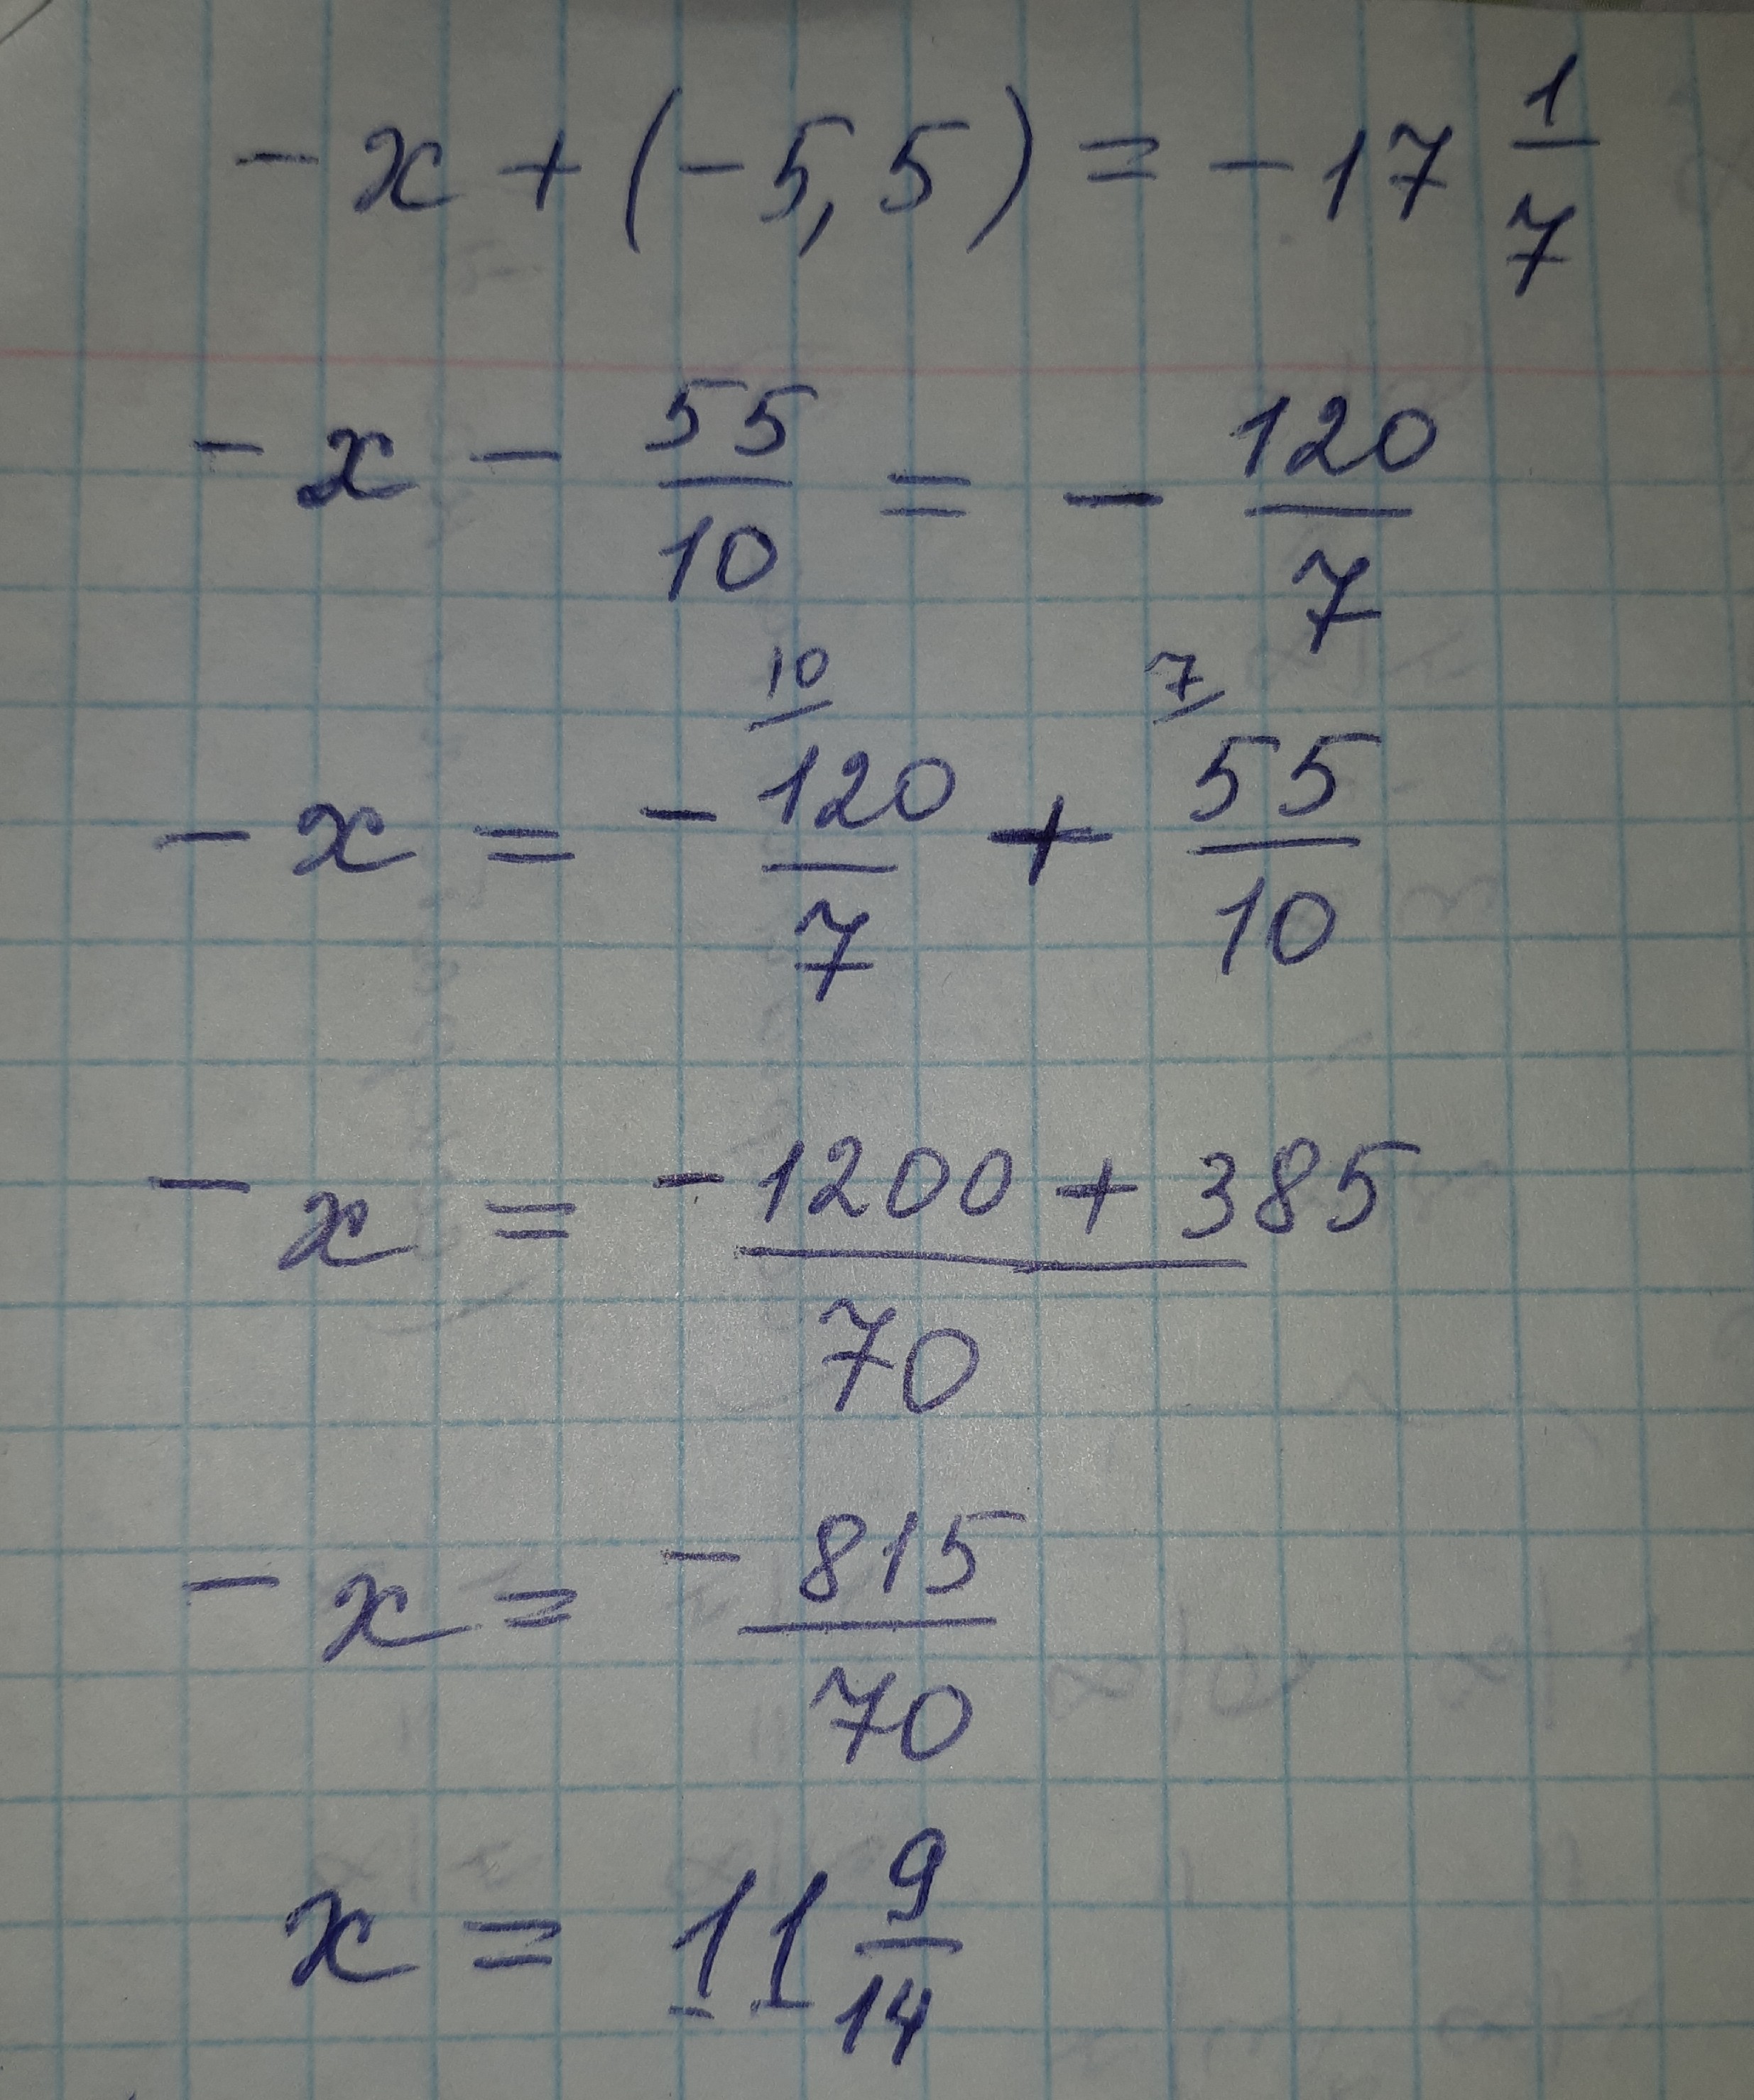 -x + (-5,5) = -17 1/7
-x - 55/10 = - 120/7
10/ 7/
-x = - 120/7 + 55/10
-x = (-1200 + 385)/70
-x = -815/70
x = 11 9/14